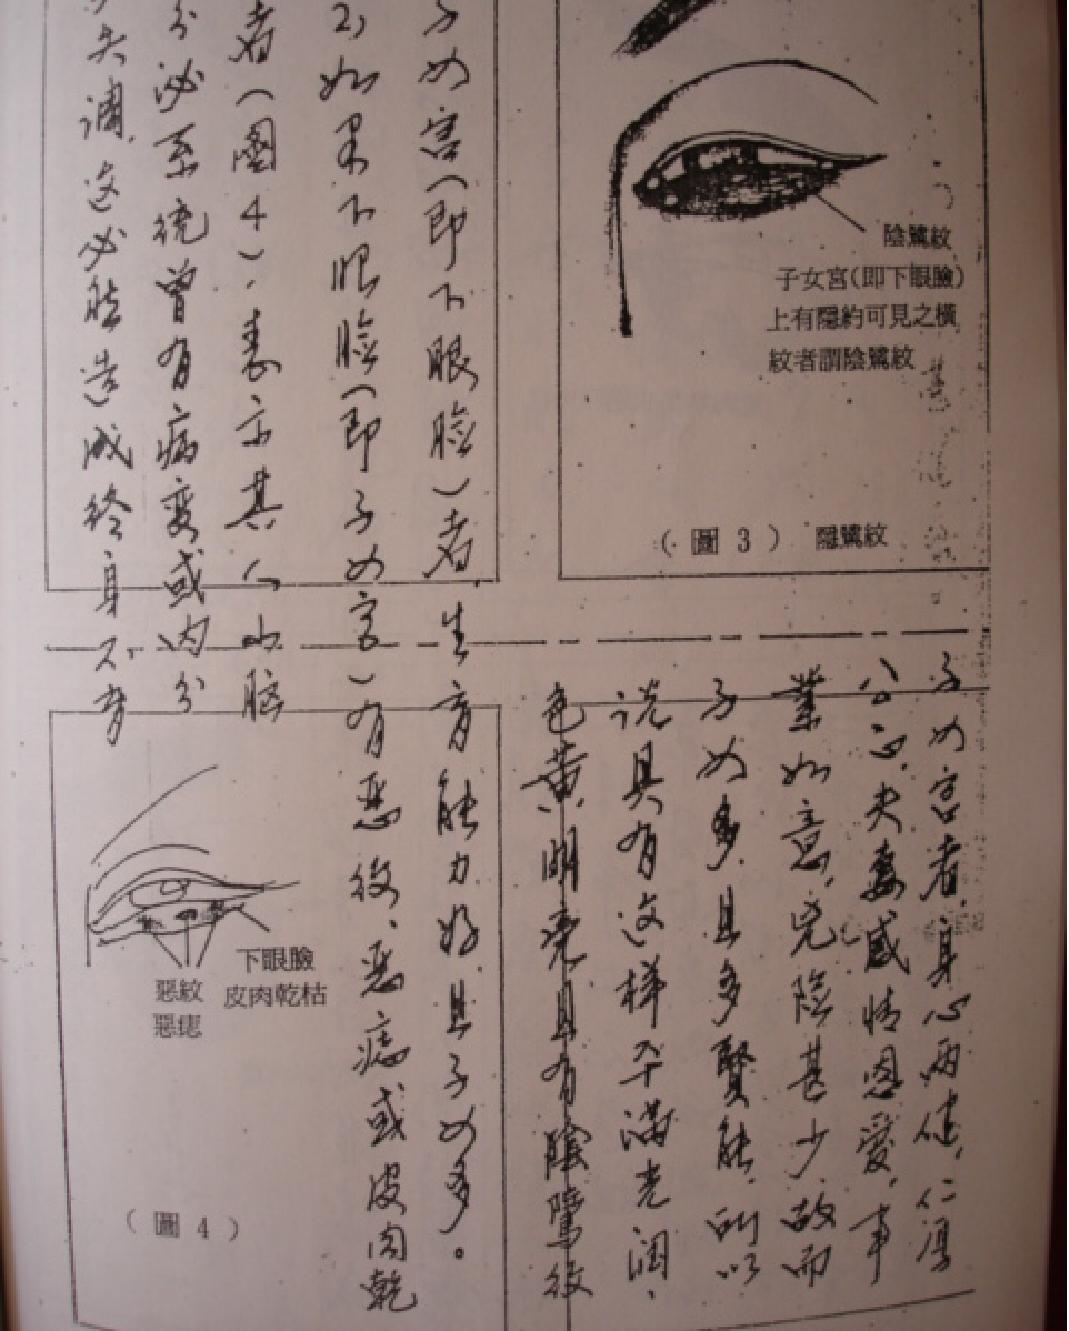 陰騭紋
子女宮(即下眼臉)
上有隱約可見之橫
紋者謂陰騭紋
(圖3) 隱騭紋
子女宮者,身心兩健,仁厚
公正,夫妻感情恩愛,事
業如意,兇險甚少,故而
子女多,且多賢能,所以
說具有这樣平滿光潤,
色黃,明亮且有陰騭紋
子女宮(即下眼臉)者,生育能力好且子女多。
2)如果下眼臉(即子女宮)有惡紋、惡痣或皮肉乾
者(圖4),表示其人小腦
分泌系統曾有病变或內分
失調,这必然造成終身不育
下眼臉
皮肉乾枯
惡紋
惡痣
(圖4)